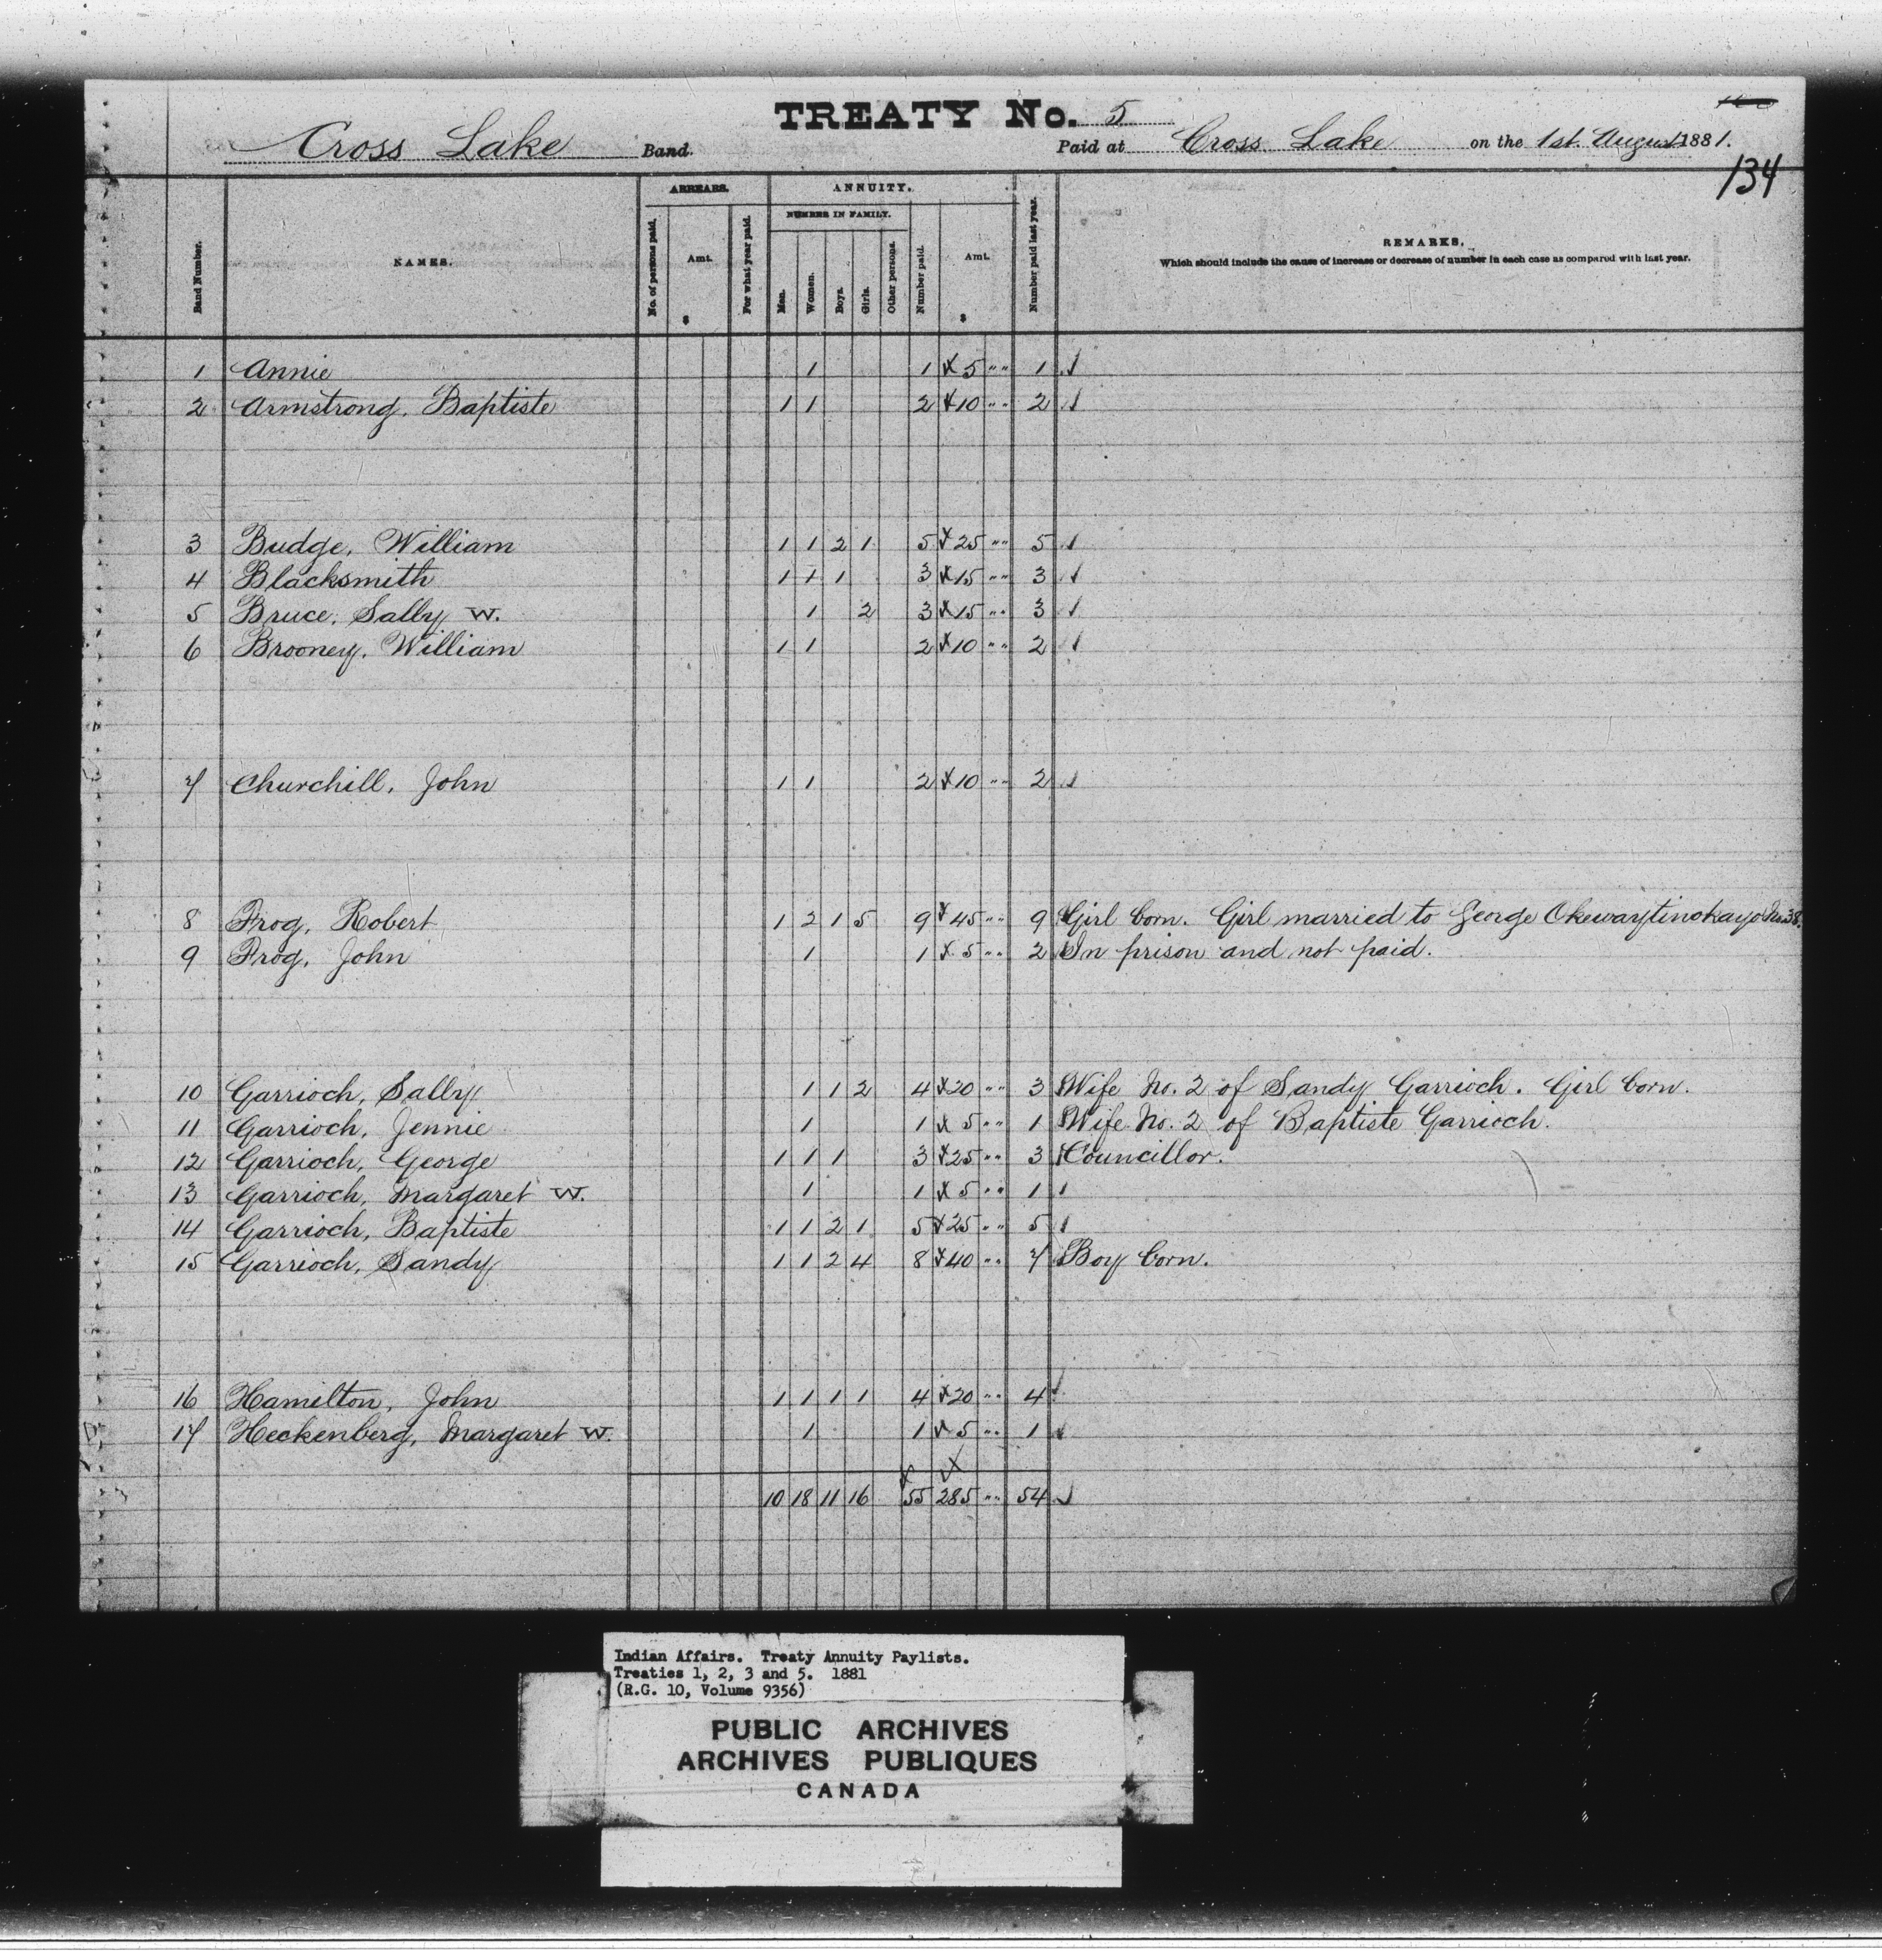 TREATY No. 5
Cross Lake Band. Paid at Cross Lake on the 1st. August 1881.
134
Band Number.
NAMES.
ARREARS.
No. of persons paid.
Amt.
$
For what year paid.
ANNUITY.
NUMBER IN FAMILY.
Men.
Women.
Boys.
Girls.
Other persons.
Number paid.
Amt.
$
Number paid last year.
REMARKS.
Which should include the cause of increase or decrease of number in each case as compared with last year.
1 Annie 1 1 5 " " 1
2 Armstrong, Baptiste 1 1 2 10 " " 2
3 Budge, William 1 1 2 1 5 25 " " 5
4 Blacksmith 1 1 1 3 15 " " 3
5 Bruce, Sally W. 1 2 3 15 " " 3
6 Brooney, William 1 1 2 10 " " 2
7 Churchill, John 1 1 2 10 " " 2
8 Frog, Robert 1 2 1 5 9 45 " " 9 Girl born. Girl married to George Okewaytinokayo No. 38.
9 Frog, John 1 1 5 " " 2 In prison and not paid.
10 Garrioch, Sally 1 1 2 4 20 " " 3 Wife No. 2 of Sandy Garrioch. Girl born.
11 Garrioch, Jennie 1 1 5 " " 1 Wife No. 2 of Baptiste Garrioch.
12 Garrioch, George 1 1 1 3 25 " " 3 Councillor.
13 Garrioch, Margaret W. 1 1 5 " " 1
14 Garrioch, Baptiste 1 1 2 1 5 25 " " 5
15 Garrioch, Sandy 1 1 2 4 8 40 " " 7 Boy born.
16 Hamilton, John 1 1 1 1 4 20 " " 4
17 Heckenberg, Margaret W. 1 1 5 " " 1
10 18 11 16 55 285 " " 54
Indian Affairs. Treaty Annuity Paylists.
Treaties 1, 2, 3 and 5. 1881
(R.G. 10, Volume 9356)
PUBLIC ARCHIVES
ARCHIVES PUBLIQUES
CANADA